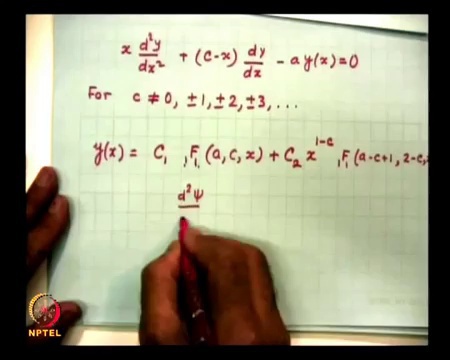 x d²y/dx² + (c-x) dy/dx - a y(x) = 0
For c ≠ 0, ±1, ±2, ±3, ...
y(x) = C₁ ₁F₁ (a, c, x) + C₂ x^(1-c) ₁F₁ (a-c+1, 2-c,
d²ψ
NPTEL